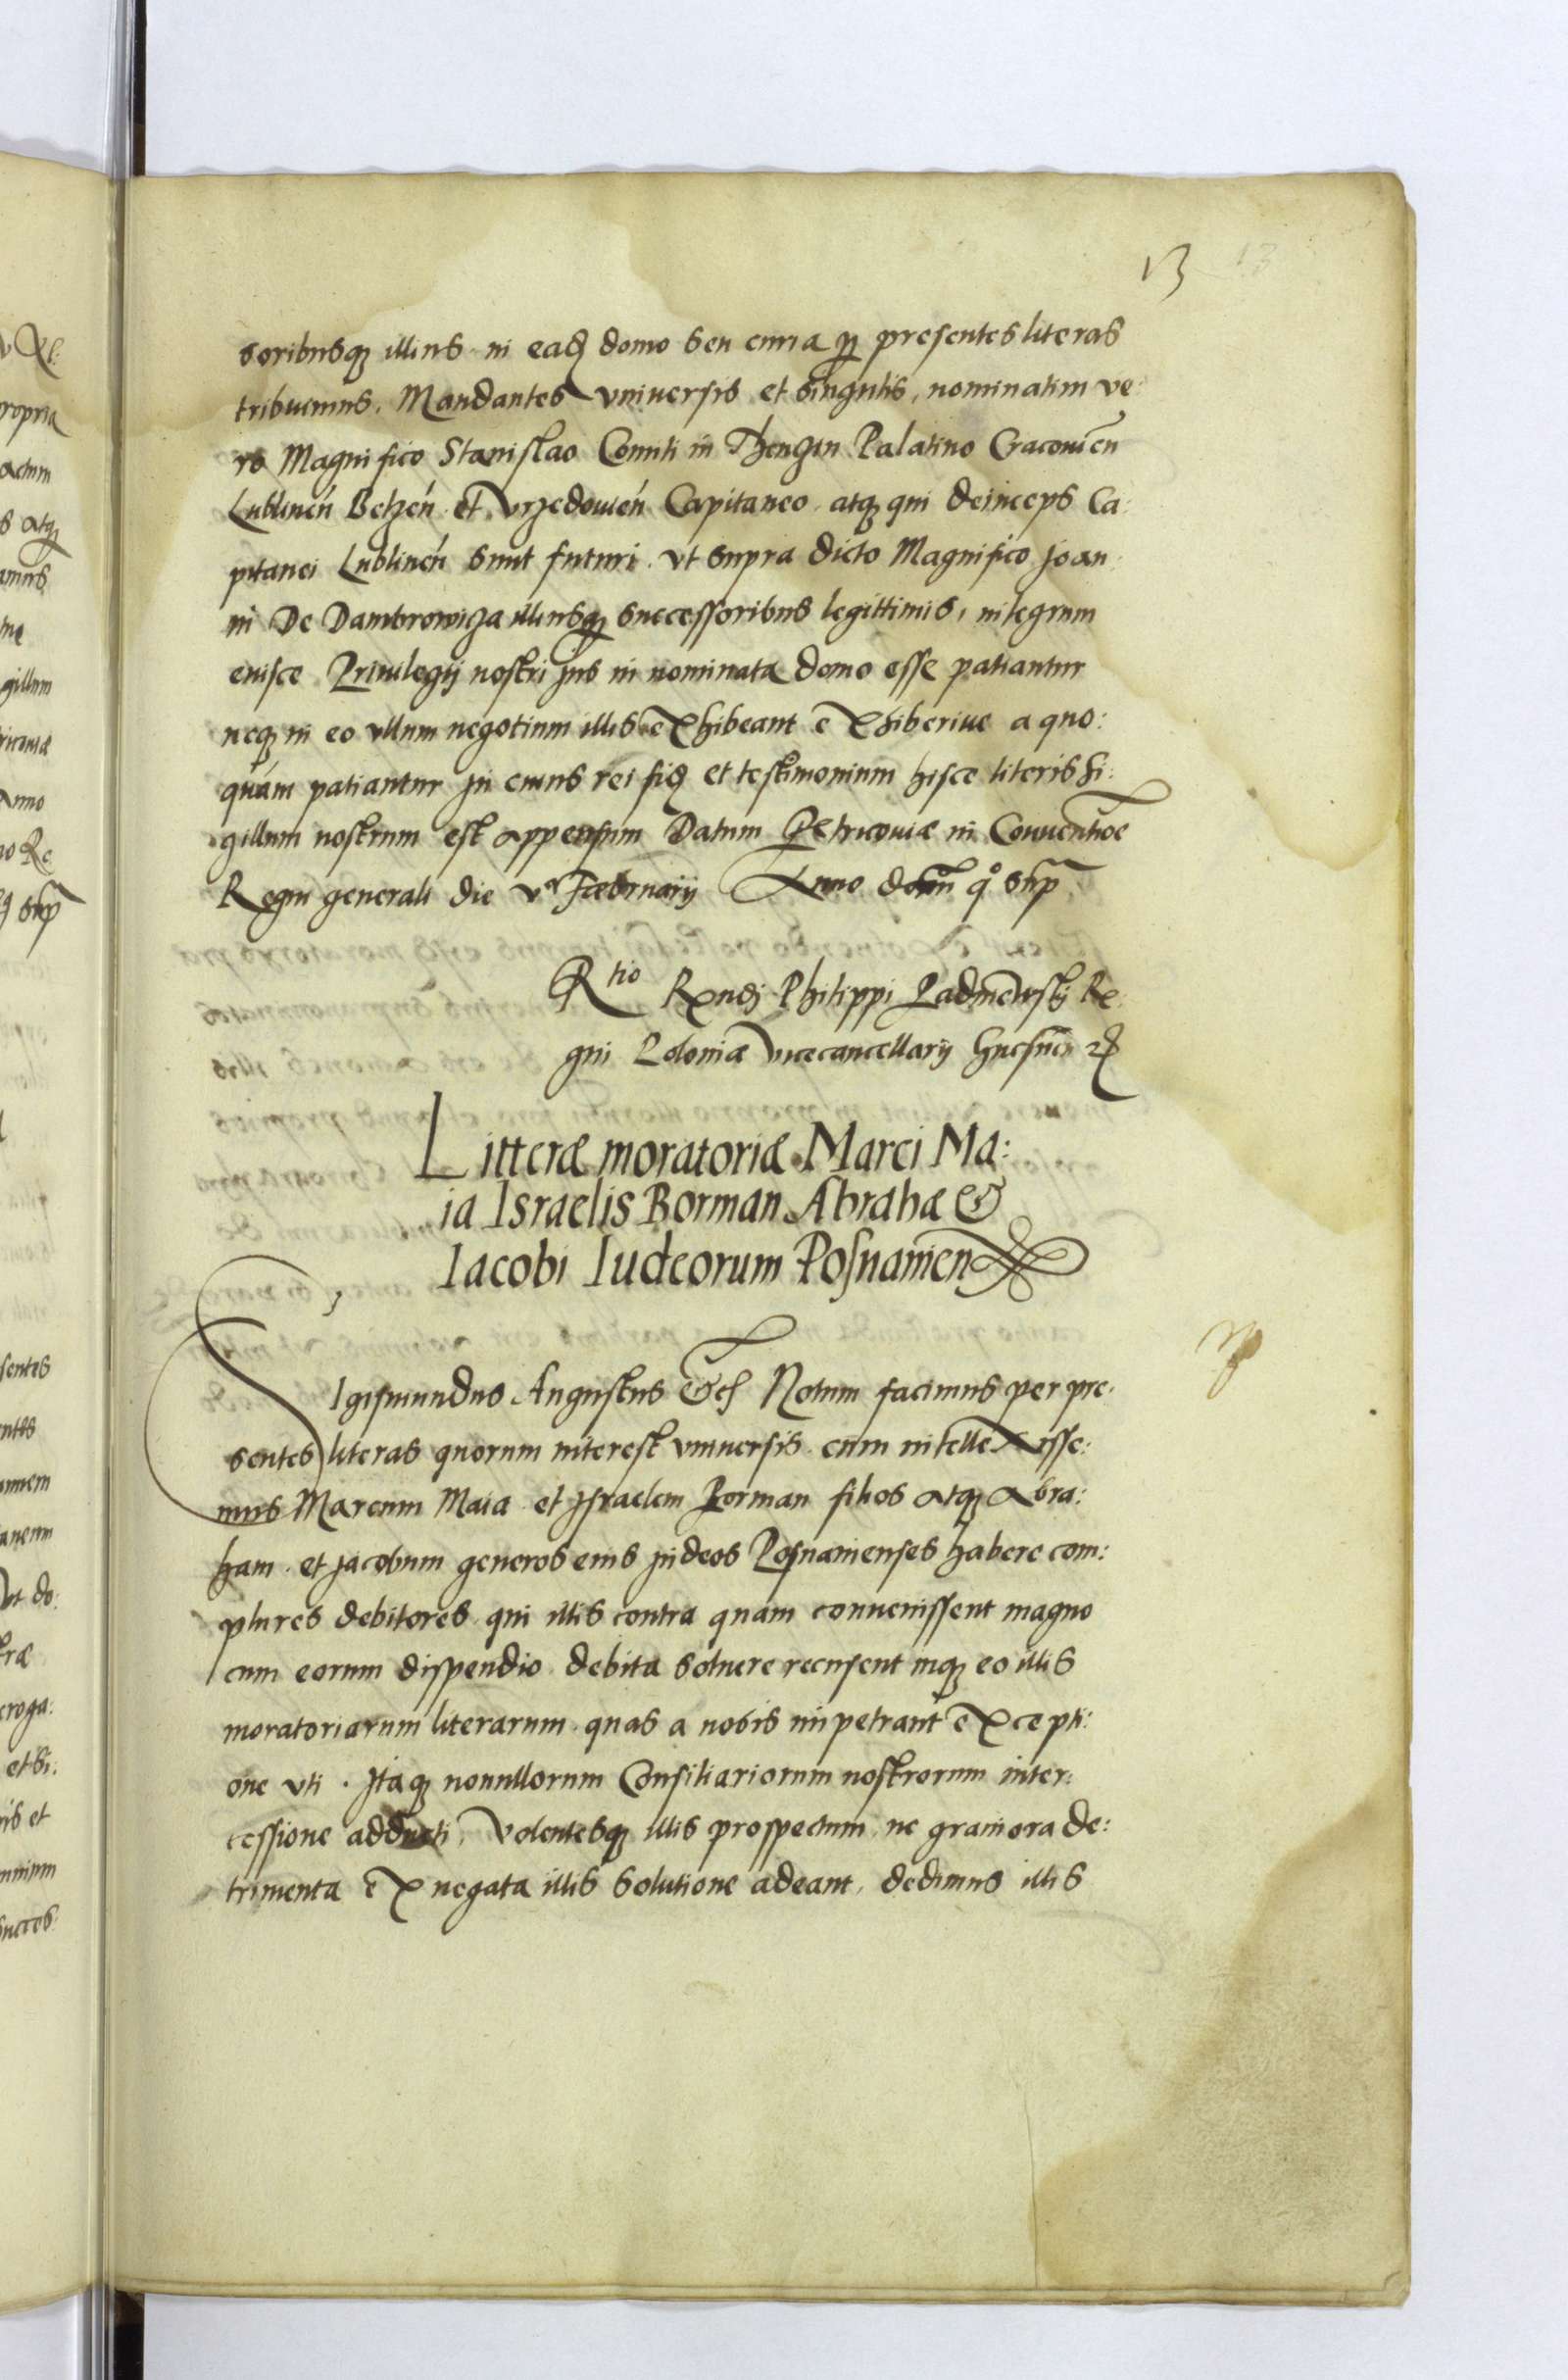 13
soribusq illius in eadē domo seu curia p presentes literas
tribuimus. Mandantes vniuersis et singulis, nominatim ve
ro Magnifico Stanislao Comiti in Thenczin Palatino Cracouieñ
Lublineñ Belzeñ et vrzedouieñ Capitaneo. atq qui deinceps Ca:
pitanei Lublineñ sunt futuri. vt supra dicto Magnifico Joan
ni De Dambrowicza illiusq successoribus legittimis, integrum
cuisce Priuilegij nostri jus in nominata domo esse patiantur
neq in eo vllum negotium illis exhibeant exhiberiue a quo:
quám patiantur Jn cuius rei fidē et testimonium hisce literis si:
gillum nostrum est appensum Datum Petricouiæ in Conuentioē
Regni generali die vᵃ Fæbruarij Anno domi qᵒ sup
Rtio Rndj Philippi Padnieuskj Re:
gni Poloniæ Vicecancellarij Gnesneñ
Litteræ moratoriæ Marci Ma:
ia Israelis Borman Abrahæ &
Iacobi Iudeorum Posnanien
Sigismundus Augustus &c Notum facimus per pre:
sentes literas quorum interest vniuersis. cum intellexisse:
mus Marcum Maia et Jsraelem Borman filios atq Abra:
ham. et Jacobum generos eius Judeos Posnanienses habere com:
plures debitores qui illis contra quam conuenissent magno
cum eorum dispendio debita soluere recusent inq eo illis
moratoriarum literarum quas a nobis impetrant excepti:
one vti. Jtaq nonnullorum Consiliariorum nostrorum inter:
cessione adducti, Volentesq illis prospectum ne grauiora de:
trimenta ex negata illis solutione adeant, dedimus illis